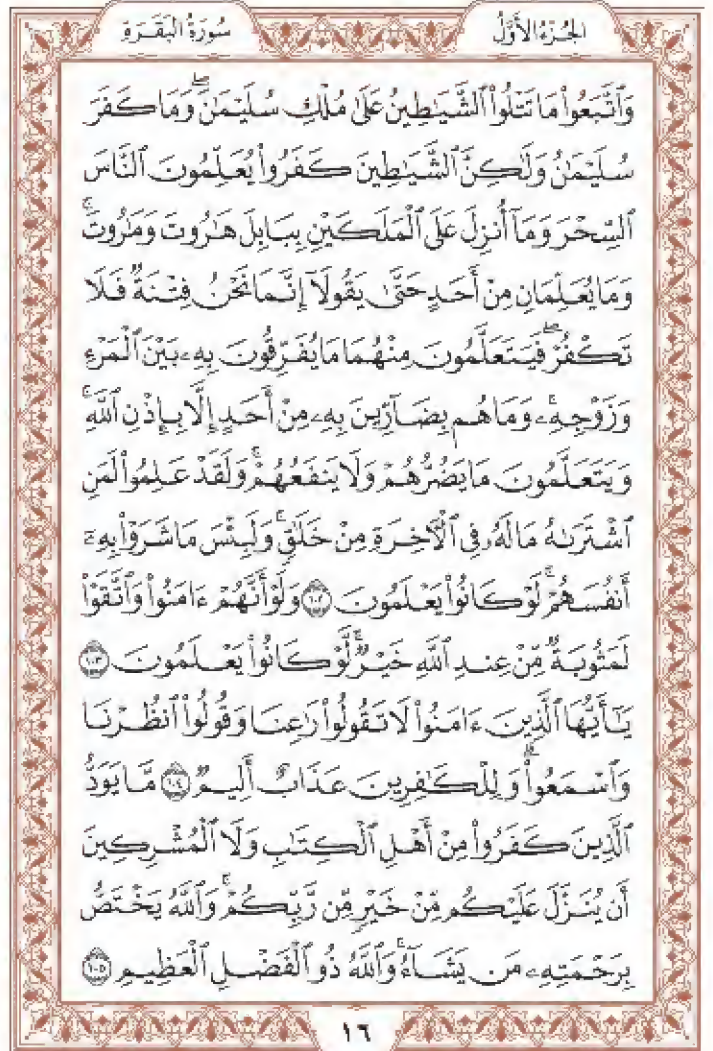 سُورَةُ الْبَقَـرَةِ الجُزْءُ الأَوَّلُ
وَٱتَّبَعُواْ مَا تَتۡلُواْ ٱلشَّيَٰطِينُ عَلَىٰ مُلۡكِ سُلَيۡمَٰنَۖ وَمَا كَفَرَ
سُلَيۡمَٰنُ وَلَٰكِنَّ ٱلشَّيَٰطِينَ كَفَرُواْ يُعَلِّمُونَ ٱلنَّاسَ
ٱلسِّحۡرَ وَمَآ أُنزِلَ عَلَى ٱلۡمَلَكَيۡنِ بِبَابِلَ هَٰرُوتَ وَمَٰرُوتَۚ
وَمَا يُعَلِّمَانِ مِنۡ أَحَدٍ حَتَّىٰ يَقُولَآ إِنَّمَا نَحۡنُ فِتۡنَةٞ فَلَا
تَكۡفُرۡۖ فَيَتَعَلَّمُونَ مِنۡهُمَا مَا يُفَرِّقُونَ بِهِۦ بَيۡنَ ٱلۡمَرۡءِ
وَزَوۡجِهِۦۚ وَمَا هُم بِضَآرِّينَ بِهِۦ مِنۡ أَحَدٍ إِلَّا بِإِذۡنِ ٱللَّهِۚ
وَيَتَعَلَّمُونَ مَا يَضُرُّهُمۡ وَلَا يَنفَعُهُمۡۚ وَلَقَدۡ عَلِمُواْ لَمَنِ
ٱشۡتَرَىٰهُ مَا لَهُۥ فِي ٱلۡأٓخِرَةِ مِنۡ خَلَٰقٖۚ وَلَبِئۡسَ مَا شَرَوۡاْ بِهِۦٓ
أَنفُسَهُمۡۚ لَوۡ كَانُواْ يَعۡلَمُونَ ١٠٢ وَلَوۡ أَنَّهُمۡ ءَامَنُواْ وَٱتَّقَوۡاْ
لَمَثُوبَةٞ مِّنۡ عِندِ ٱللَّهِ خَيۡرٞۚ لَّوۡ كَانُواْ يَعۡلَمُونَ ١٠٣
يَٰٓأَيُّهَا ٱلَّذِينَ ءَامَنُواْ لَا تَقُولُواْ رَٰعِنَا وَقُولُواْ ٱنظُرۡنَا
وَٱسۡمَعُواْۗ وَلِلۡكَٰفِرِينَ عَذَابٌ أَلِيمٞ ١٠٤ مَّا يَوَدُّ
ٱلَّذِينَ كَفَرُواْ مِنۡ أَهۡلِ ٱلۡكِتَٰبِ وَلَا ٱلۡمُشۡرِكِينَ
أَن يُنَزَّلَ عَلَيۡكُم مِّنۡ خَيۡرٖ مِّن رَّبِّكُمۡۚ وَٱللَّهُ يَخۡتَصُّ
بِرَحۡمَتِهِۦ مَن يَشَآءُۚ وَٱللَّهُ ذُو ٱلۡفَضۡلِ ٱلۡعَظِيمِ ١٠٥
١٦